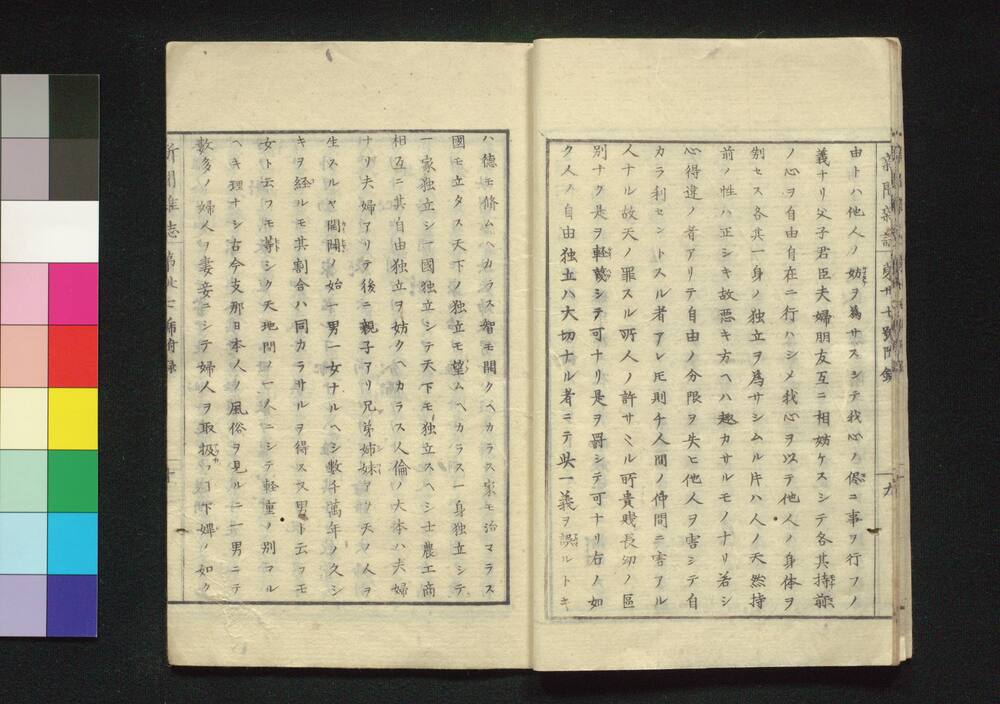 由トハ他人ノ妨ヲ為サスシテ我心ノ儘ニ事ヲ行フノ
義ナリ父子君臣夫婦朋友互ニ相妨ケスシテ各其持前
ノ心ヲ自由自在ニ行ハシメ我心ヲ以テ他人ノ身体ヲ
別セス各其一身ノ独立ヲ為サシムル片ハ人ノ天然持
前ノ性ハ正シキ故悪キ方ヘハ趣カサルモノナリ若シ
心得違ノ者アリテ自由ノ分限ヲ失ヒ他人ヲ害シテ自
カラ利セントスル者アレ𪜈則チ人間ノ仲間ニ害アル
人ナル故天ノ罪スル所人ノ許サヽル所貴賤長幼ノ區
別ナク是ヲ軽蔑シテ可ナリ是ヲ罰シテ可ナリ右ノ如
ク人ノ自由独立ハ大切ナル者ニテ此一義ヲ誤ルトキ
ハ徳モ脩ムヘカラス智モ開クヘカラス家モ治マラス
國モ立タス天下ノ独立モ望ムヘカラス一身独立シテ
一家独立シ一國独立シテ天下モ独立スヘシ士農工商
相互ニ其自由独立ヲ妨クヘカラス人倫ノ大本ハ夫婦
ナリ夫婦アリテ後ニ親子アリ兄弟姉妹アリ天ノ人ヲ
生スルヤ開闢ノ始一男一女ナルヘシ数千萬年ノ久シ
キヲ経ルモ其割合ハ同カラサルヲ得ス又男ト云フモ
女ト云フモ等シク天地間ノ一人ニシテ軽重ノ別アル
ヘキ理ナシ古今支那日本人ノ風俗ヲ見ルニ一男ニテ
數多ノ婦人ヲ妻妾ニシテ婦人ヲ取扱フヿ下婢ノ如ク
新聞雑志